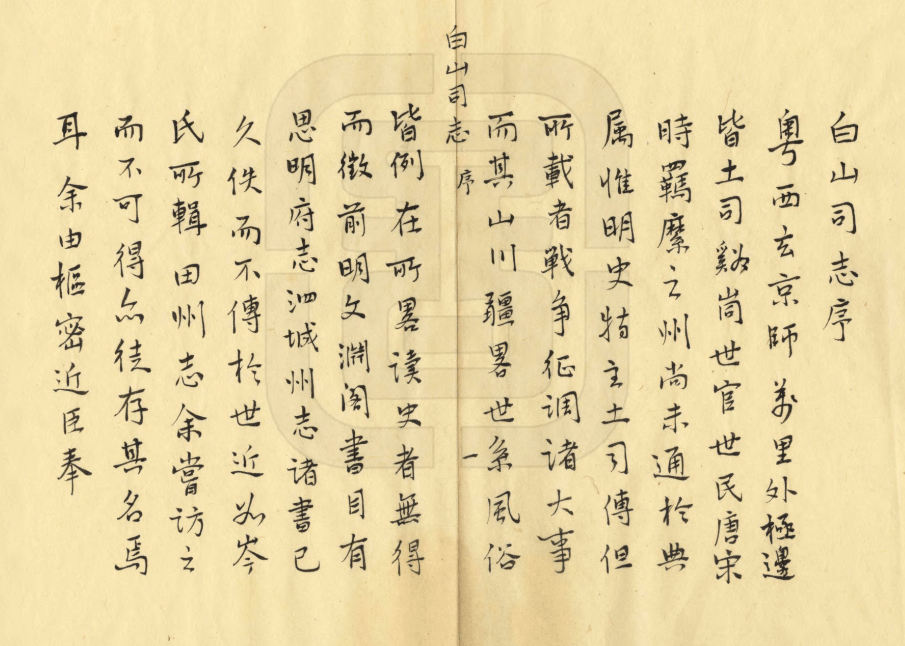 白山司志序
粵西去京師萬里外極邊
皆土司谿峝世官世民唐宋
時羈縻之州尚未通於典
属惟明史特立土司傳但
所載者戰争征調諸大事
而其山川疆畧世系風俗
白山司志 序 一
皆例在所畧读史者無得
而徵前明文淵阁書目有
思明府志泗城州志诸書已
久佚而不傳於世近如岑
氏所輯田州志余嘗访之
而不可得亦徒存其名焉
耳余由樞密近臣奉